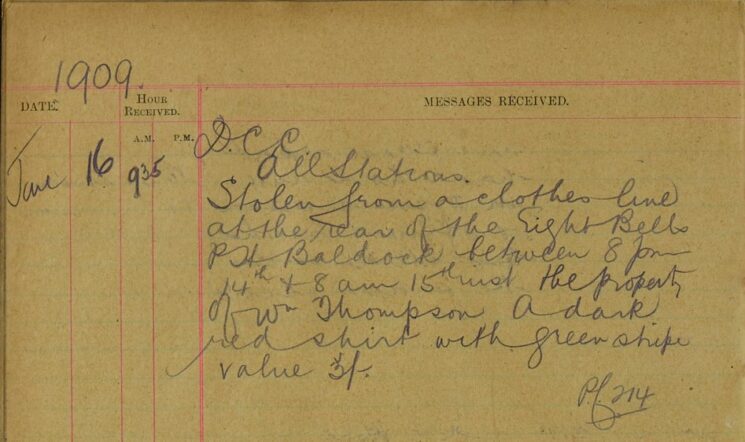 1909.
DATE.
HOUR RECEIVED.
MESSAGES RECEIVED.
A.M. P.M.
June 16 935
D.C.C.
All Stations.
Stolen from a clothes line
at the rear of the Eight Bells
P.H Baldock between 8 pm
14th & 8 am 15th inst the property
of Wm Thompson A dark
red shirt with green stripe
value 3/-.
P.C 214